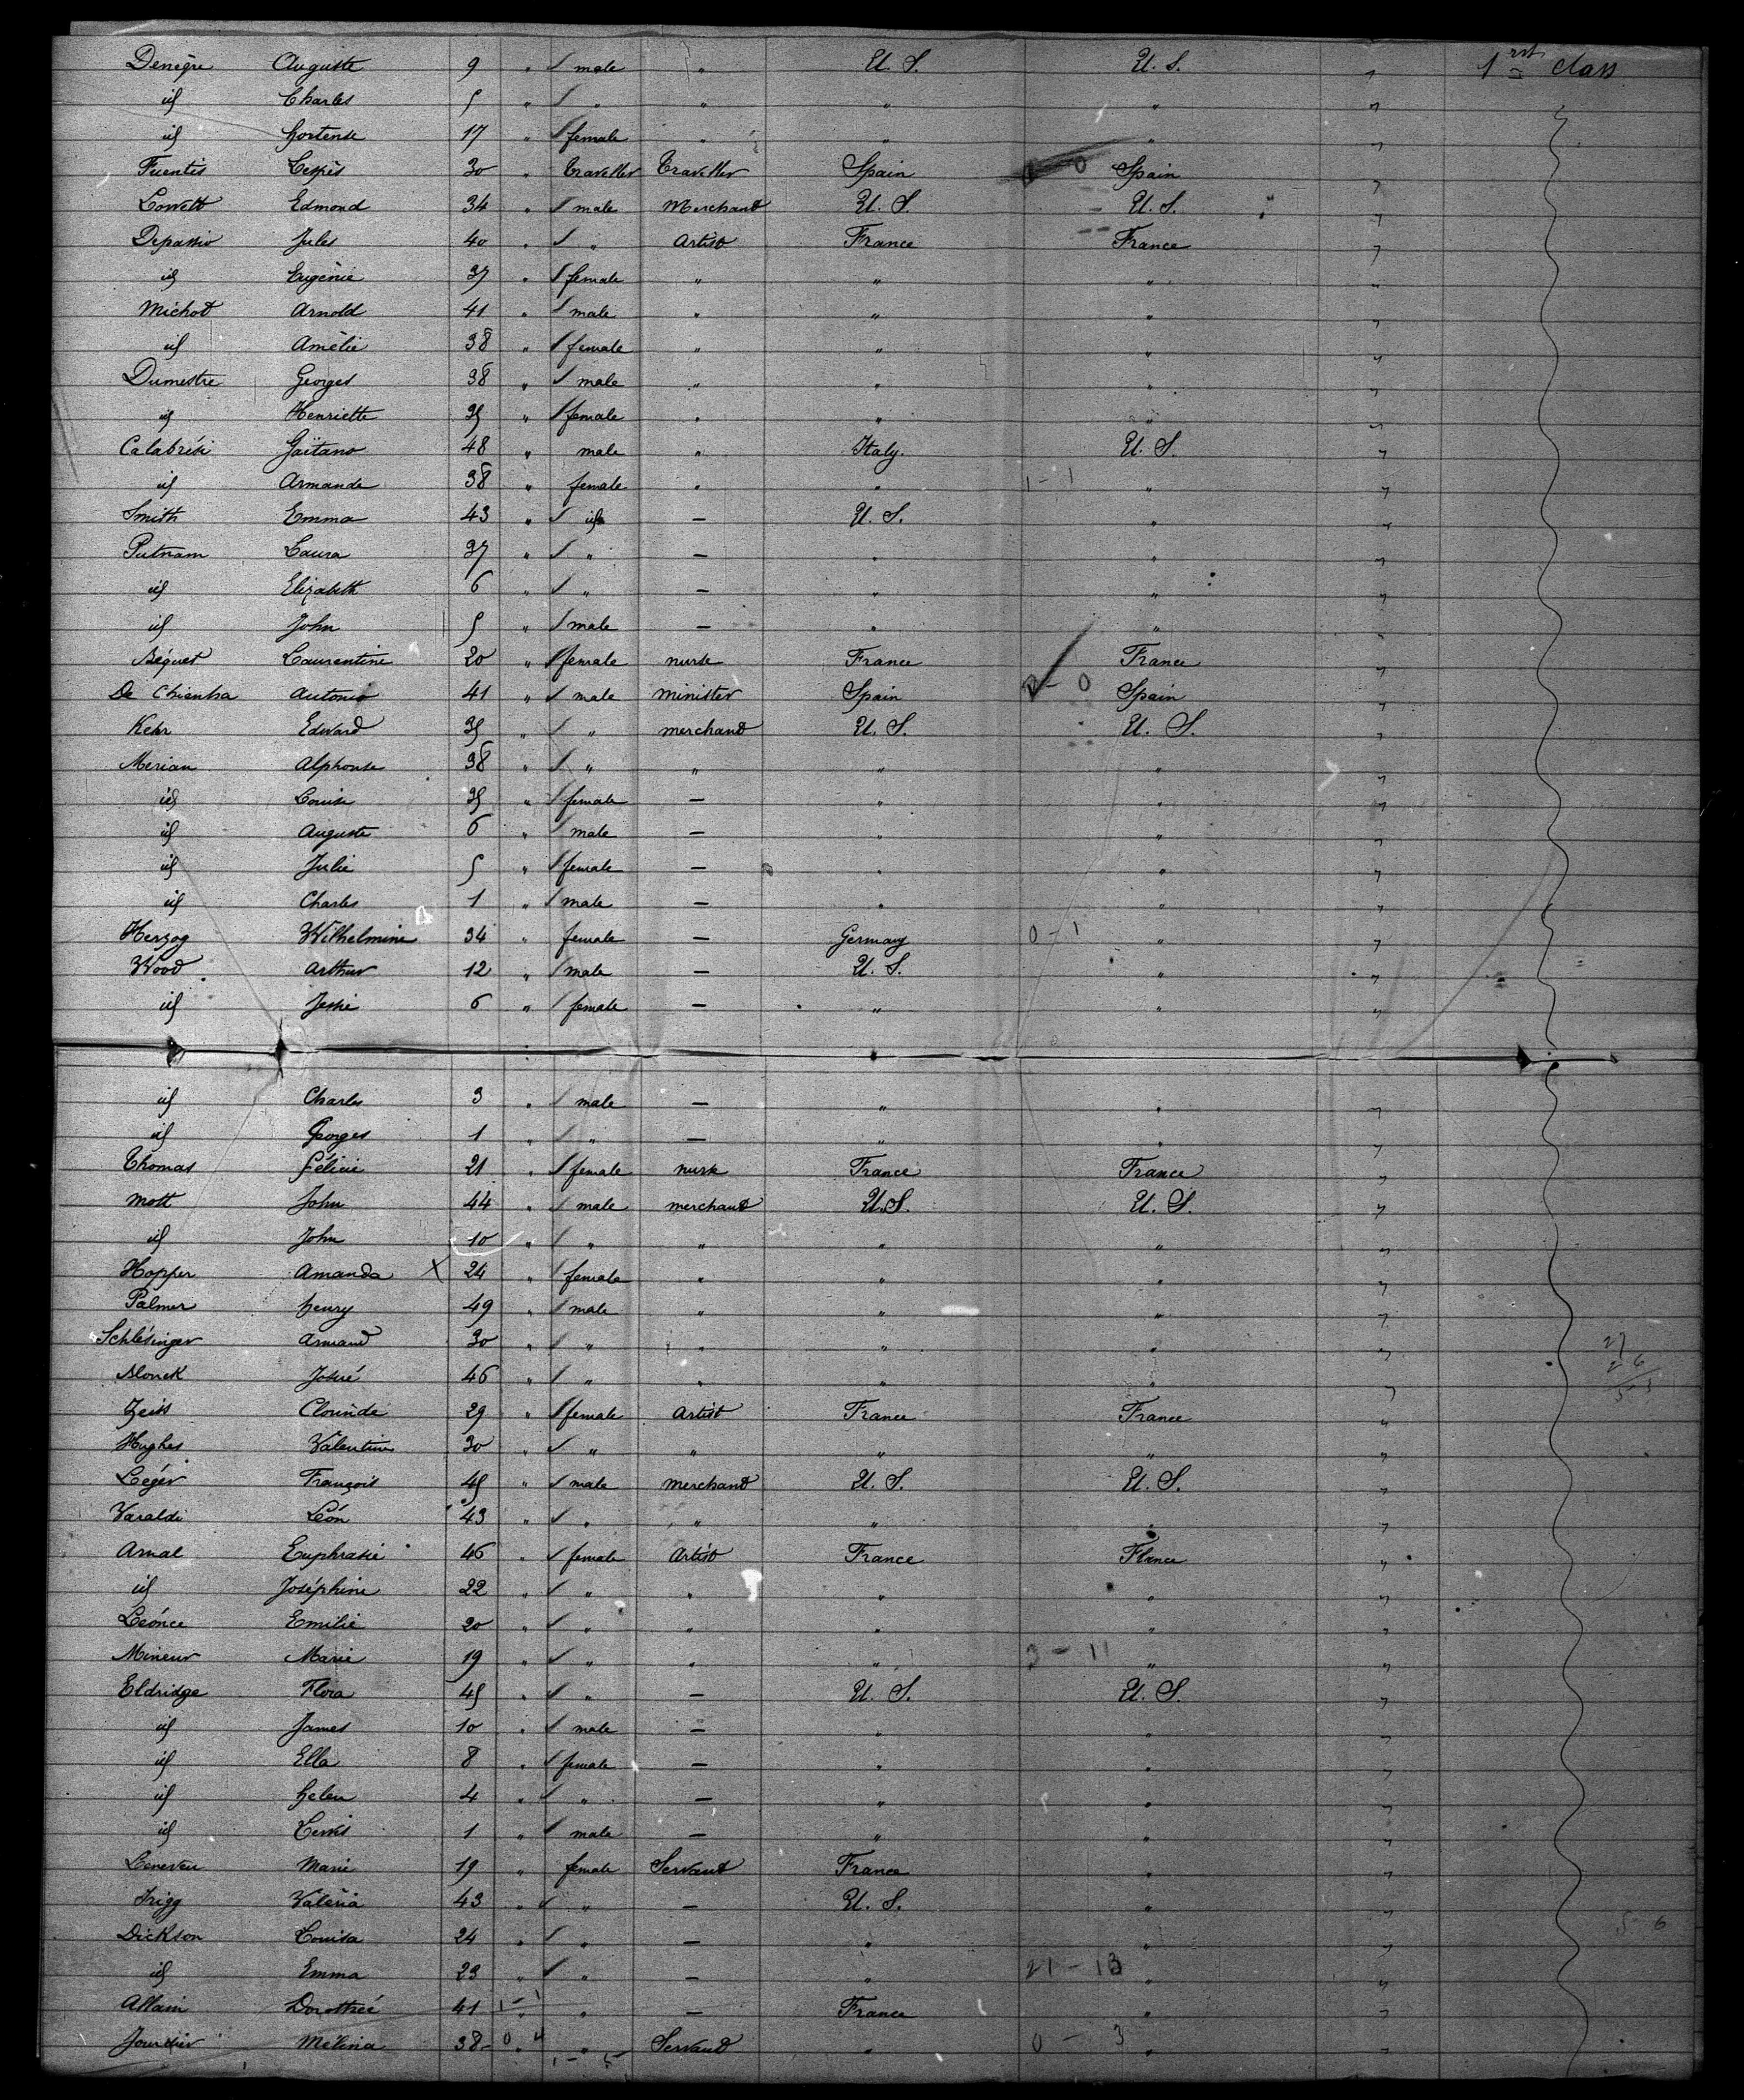 Denègre Auguste 9 " / male " U. S. U. S. " 1rst class
id Charles 5 " / " " " " "
id hortense 17 " / female " " " "
Fuentès 30 " Traveller Traveller Spain 0 Spain "
Lowett Edmond 34 " / male Merchant U. S. - U. S. "
Depassio Jules 40 " / " Artist France France "
id Eugènie 37 " / female " " " "
Michot Arnold 41 " / male " " " "
id Amèlie 38 " / female " " " "
Dumestre Georges 38 " / male " " " "
id Henriette 35 " / female " " " "
Calabrési Gaïtano 48 " male " Italy. U. S. "
id Armande 38 " female " " 1 - 1 " "
Smith Emma 43 " / id — U. S. " "
Putnam Laura 37 " / " — " " "
id Elizabeth 6 " / " — " " "
id John 5 " / male — " " "
Béquet Laurentine 20 " / female nurse France France "
De Antonio 41 " / male minister Spain - 0 Spain "
Kehr Edward 35 " / " merchant U. S. U. S. "
Merian Alphonse 38 " / " " " " "
id Louise 35 " / female — " " "
id Auguste 6 " / male — " " "
id Julie 5 " / female — " " "
id Charles 1 " / male — " " "
Herzog Wilhelmine 34 " female — Germany 0 - 1 " "
Wood Arthur 12 " / male — U. S. " "
id Jessie 6 " / female — " " "
id Charles 3 " / male — " " "
id Georges 1 " / " — " " "
Thomas Félicie 21 " / female nurse France France "
Mott John 44 " / male merchant U. S. U. S. "
id John 10 " / " " " " "
Hopper Amanda X 24 " / female " " " "
Palmer henry 49 " / male " " " "
Schlésinger Armand 30 " / " " " " "
Monck 46 " / " " " " "
Zeiss Clorinde 29 " / female Artist France France "
Hughes Valentine 30 " / " " " " "
Légér François 45 " / male merchant U. S. U. S. "
Varaldi Léon 43 " / " " " " "
Arnal Euphrasie 46 " / female Artist France France "
id Joséphine 22 " / " " " " "
Léonce Emilie 20 " / " " " " "
Mineur Marie 19 " / " " " - 11 " "
Eldridge Flora 45 " / " — U. S. U. S. "
id James 10 " / male — " " "
id Ella 8 " / female — " " "
id helen 4 " / " — " " "
id Lewis 1 " / male — " " "
Leneveu Marie 19 " female Servant France " "
Trigg Valéria 43 " / " — U. S. " "
Dickson Louisa 24 " / " — " " " 5 6
id Emma 23 " / " — " 21 - 13 " "
Allain Dorothée 41 1 - 1 " — France " "
Jourdier Mélina 38 0 4 " Servant " 0 - 3 " "
1 - 5